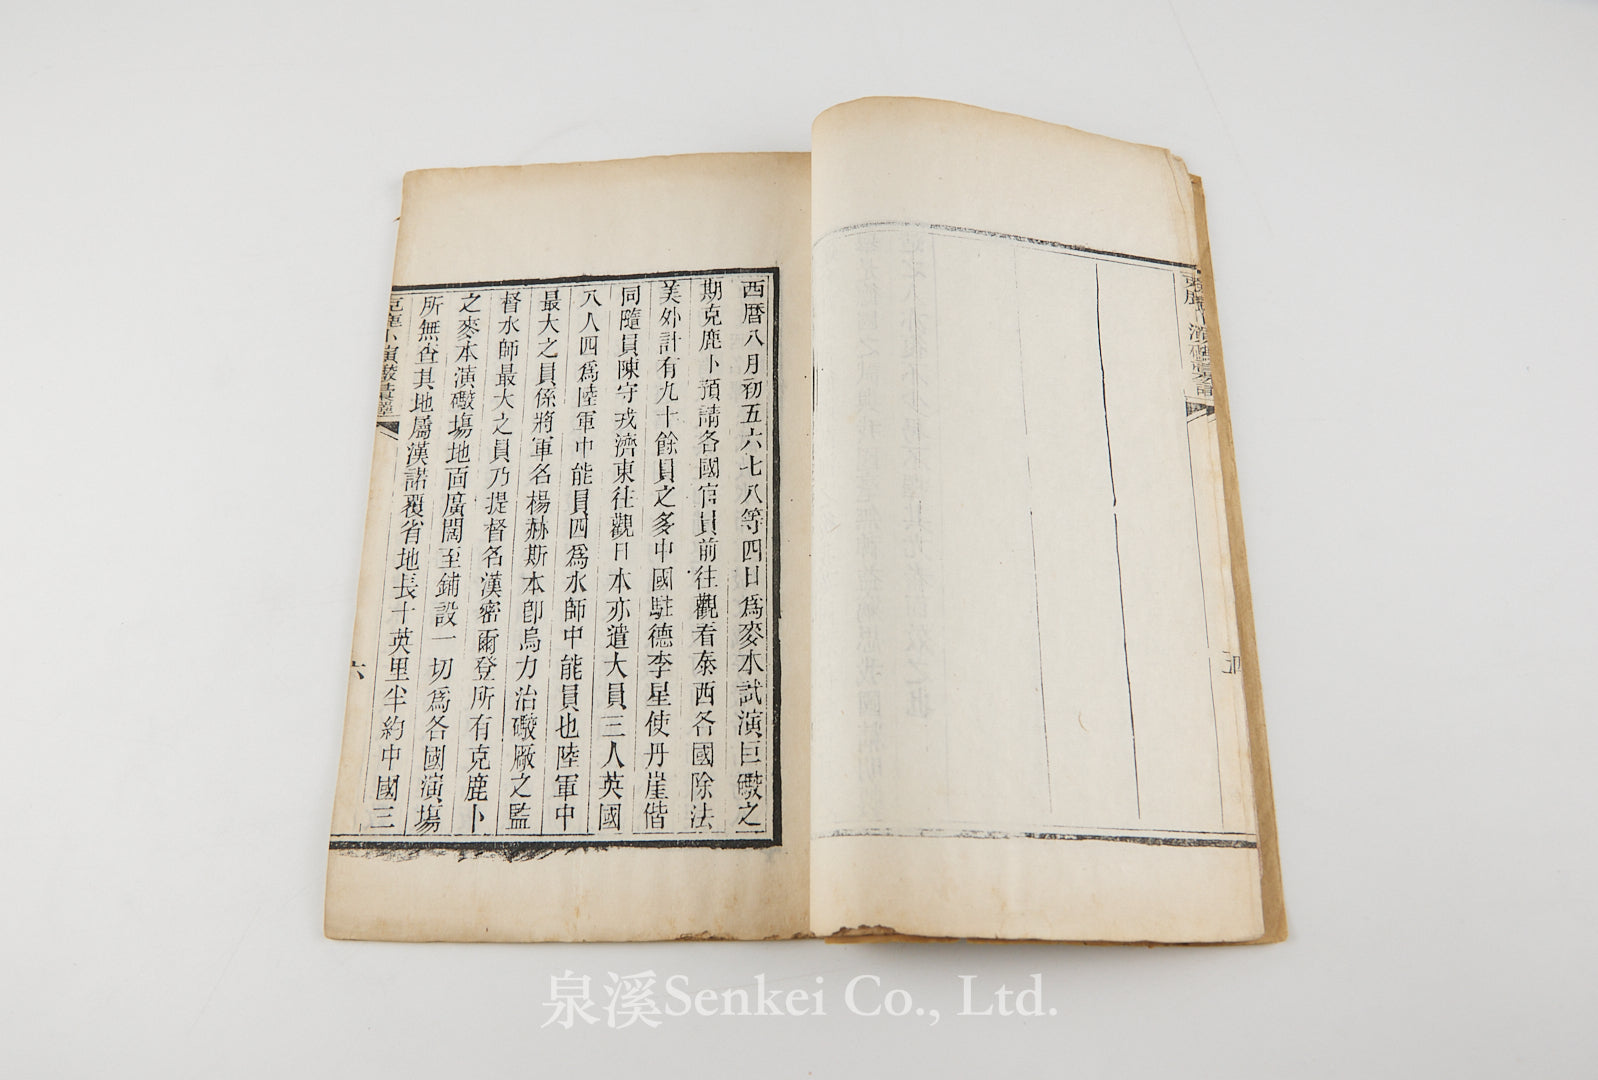 西暦八月初五六七八等四日爲麥本試演巨礮之
期克鹿卜預請各國官員前往觀看泰西各國除法
美外計有九十餘員之多中國駐德李星使丹崖偕
同隨員陳守戎濟東往觀日本亦遣大員三人英國
八人四爲陸軍中能員四爲水師中能員也陸軍中
最大之員係將軍名楊赫斯本卽烏力治礮廠之監
督水師最大之員乃提督名漢密爾登所有克鹿卜
之麥本演礮塲地面廣闊至鋪設一切爲各國演塲
所無查其地屬漢諾覆省地長十英里半約中國三
克鹿卜演礮
六
泉溪Senkei Co., Ltd.